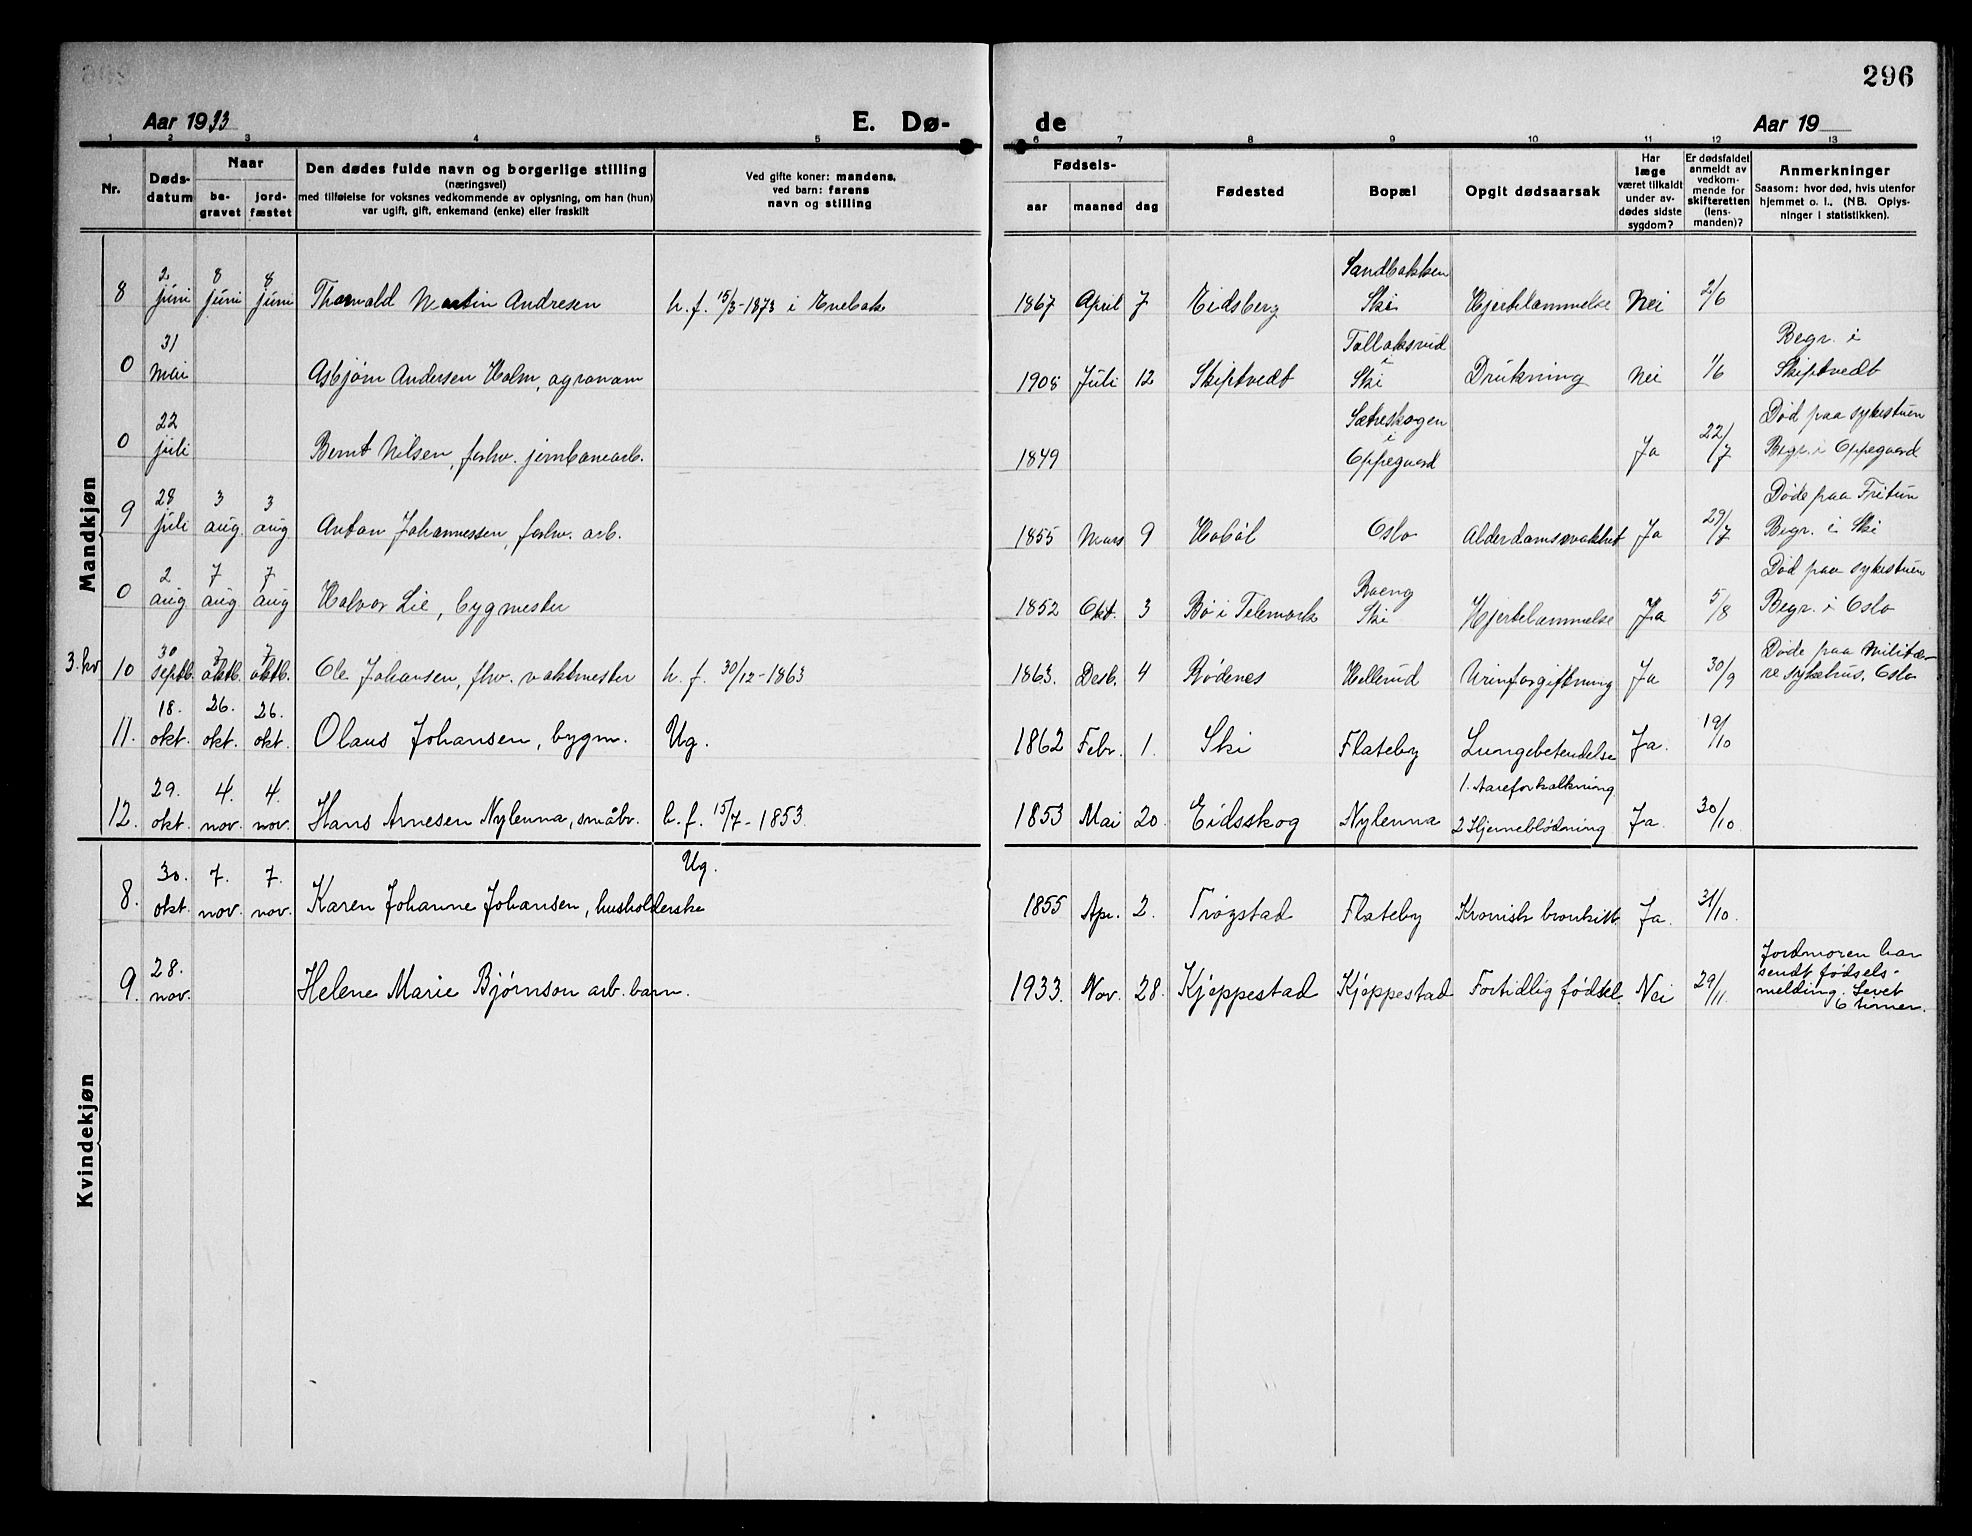 296
Aar 1933
E. Dø-
de
Aar 19
1 2 3 4 5 6 7 8 9 10 11 12 13
Nr.
Døds-
datum
Naar
be-
gravet
jord-
fæstet
Den dødes fulde navn og borgerlige stilling
(næringsvei)
med tilføielse for voksnes vedkommende av oplysning, om han (hun)
var ugift, gift, enkemand (enke) eller fraskilt
Ved gifte koner: mandens,
ved barn: farens
navn og stilling
Fødsels-
aar maaned dag
Fødested
Bopæl
Opgit dødsaarsak
Har
læge
været tilkaldt
under av-
dødes sidste
sygdom?
Er dødsfaldet
anmeldt av
vedkom-
mende for
skifteretten
(lens-
manden)?
Anmerkninger
Saasom: hvor død, hvis utenfor
hjemmet o. l., (NB. Oplys-
ninger i statistikken).
Mandkjøn
2 8 8 Sandbakken
8 juni juni juni Thorvald Martin Andresen h. f. 15/3-1873 i Enebak 1867 April 7 Eidsberg Ski Hjertelammelse Nei 2/6
31 Tallaksrud Begr. i
0 mai Asbjørn Andersen Holm, agronom 1908 Juli 12 Skiptvedt i Ski Drukning Nei 1/6 Skiptvedt
22 Sætreskogen Død paa sykestuen
0 juli Bernt Nilsen, forhv. jernbanearb. 1849 i Oppegaard Ja 22/7 Begr. i Oppegaard
28 3 3 Døde paa Fritun
9 juli aug. aug Anton Johannessen, forhv. arb. 1855 Mars 9 Hobøl Oslo Alderdomssvakhet Ja 29/7 Begr. i Ski
2 7 7 Roeng Død paa sykestuen
0 aug aug aug Halvor Lie, bygmester 1852 Okt. 3 Bø i Telemark Ski Hjertelammelse Ja 5/8 Begr. i Oslo
30 7 7 Døde paa Militæ-
3. hv 10 septb. oktb. oktb. Ole Johansen, fhv. vaktmester h. f. 30/12-1863 1863. Desb. 4 Rødenes Hellerud Urinforgiftning Ja 30/9 re sykehus, Oslo
18. 26. 26.
11. okt. okt. okt. Olaus Johansen, bygm. Ug. 1862 Febr. 1. Ski Flateby Lungebetendelse Ja. 19/10
29. 4. 4. 1. Aareforkalkning
12. okt. nov. nov. Hans Arnesen Nylenna, småbr. h. f. 15/7-1853. 1853 Mai 20. Eidsskog Nylenna 2 Hjerneblødning Ja. 30/10.
Kvindekjøn
30. 7. 7. Ug.
8. okt. nov. nov. Karen Johanne Johansen, husholderske 1855 Apr. 2. Trøgstad Flateby Kronisk bronkitt. Ja. 31/10.
28. Jordmoren har
9. nov. Helene Marie Bjørnson arb. barn. 1933. Nov. 28. Kjøppestad Kjøppestad Fortidlig fødsel. Nei 29/11. sendt fødsels-
melding. Levet
6 timer.